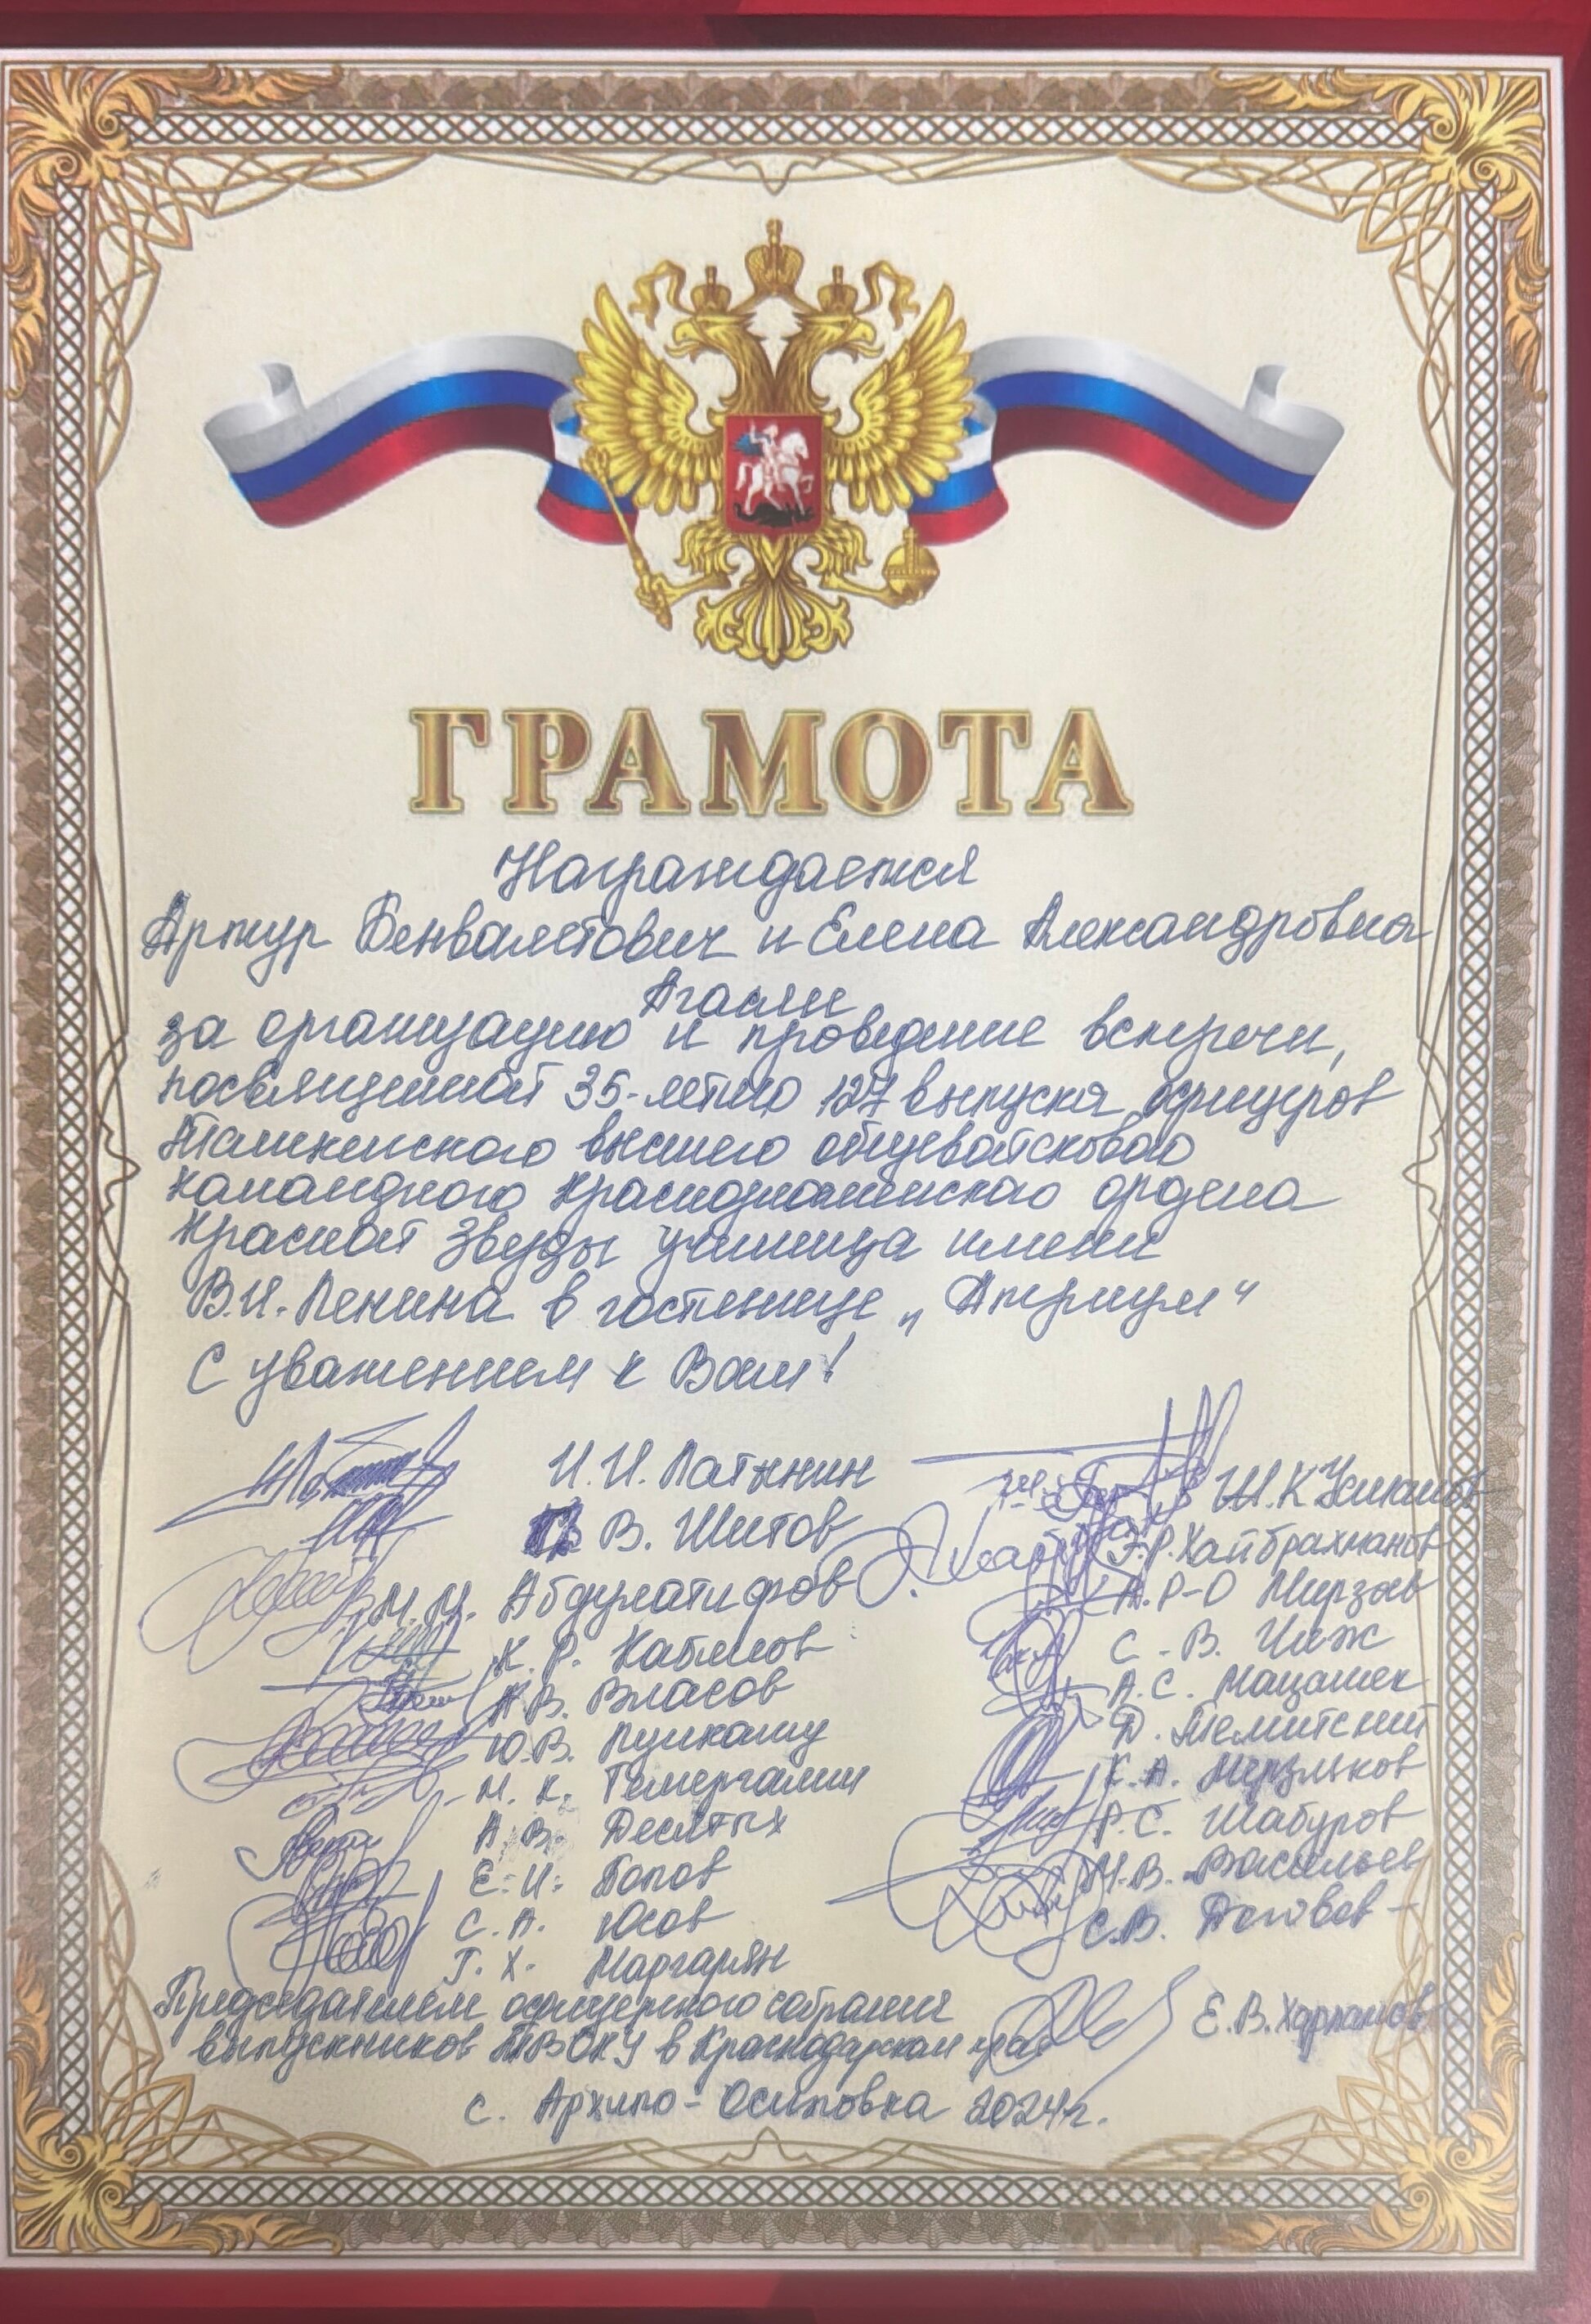 ГРАМОТА
Награждается
Артур Бенвалетович и Елена Александровна
Агасян
за организацию и проведение встречи,
посвященной 35-летию 127 выпуска офицеров
Ташкенского высшего общевойскового
командного Краснознаменского ордена
Красной Звезды училища имени
В.И. Ленина в гостенице „Атриум“
С уважением к Вам!
И.И. Латынин
В. Шитов
М.М. Абдулатифов
К.Р. Кабилов
В. Власов
Ю.В. Пушкашу
М.К. Темергалин
А.В. Десятых
Е.И. Попов
С.А. Юсов
Г.Х. Маргарян
Ш.К
Э.Р. Хайбрахманов
А.Р-О Мирзоев
С.В. Чиж
А.С. Мацашек
Д.
К.А. Мерзляков
Р.С. Шабуров
М.В. Васильев
С.В.
Председателем офицерского собрания
выпускников ТВОКУ в Краснодарском крае
Е.В. Харламов
с. Архипо-Осиповка 2024г.